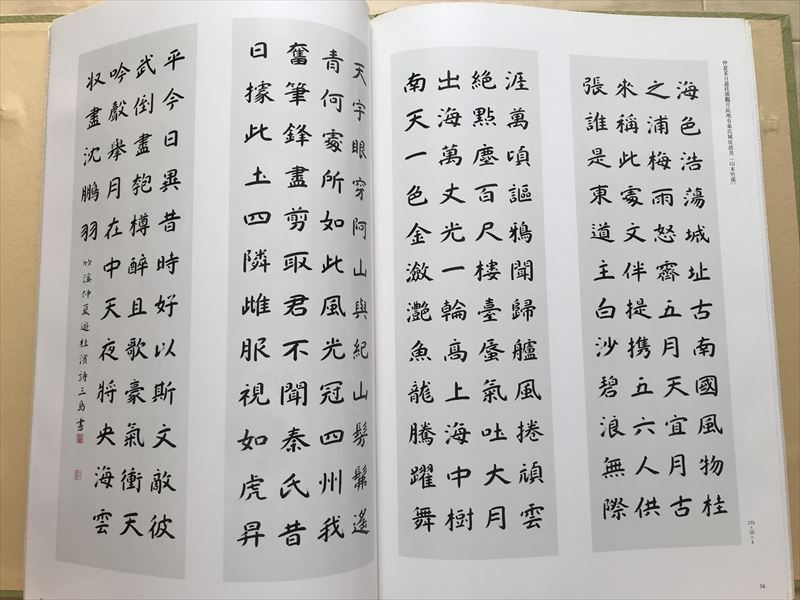 仲夏某日遊桂濱觀月此地有秦氏城址故及（山本竹溪）
海色浩蕩城址古南國風物桂
之浦梅雨怒霽五月天宜月古
來稱此處文伴提携五六人供
張誰是東道主白沙碧浪無際
涯萬頃謳鴉聞歸艫風捲頑雲
絶點塵百尺樓臺蜃氣吐大月
出海萬丈光一輪高上海中樹
南天一色金瀲灩魚龍騰躍舞
天宇眼穿阿山與紀山髣髴遙
青何處所如此風光冠四州我
奮筆鋒盡剪取君不聞秦氏昔
日據此土四隣雌服視如虎昇
平今日異昔時好以斯文敵彼
武倒盡匏樽醉且歌豪氣衝天
吟聲擧月在中天夜將央海雲
収盡沈鵬羽
竹溪仲夏遊桂濱詩三島書
173×53×4
54